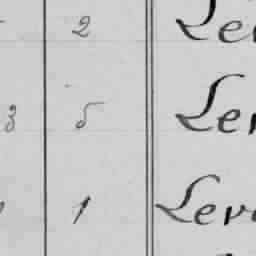 2 Le
3 5 Ler
1 Lev